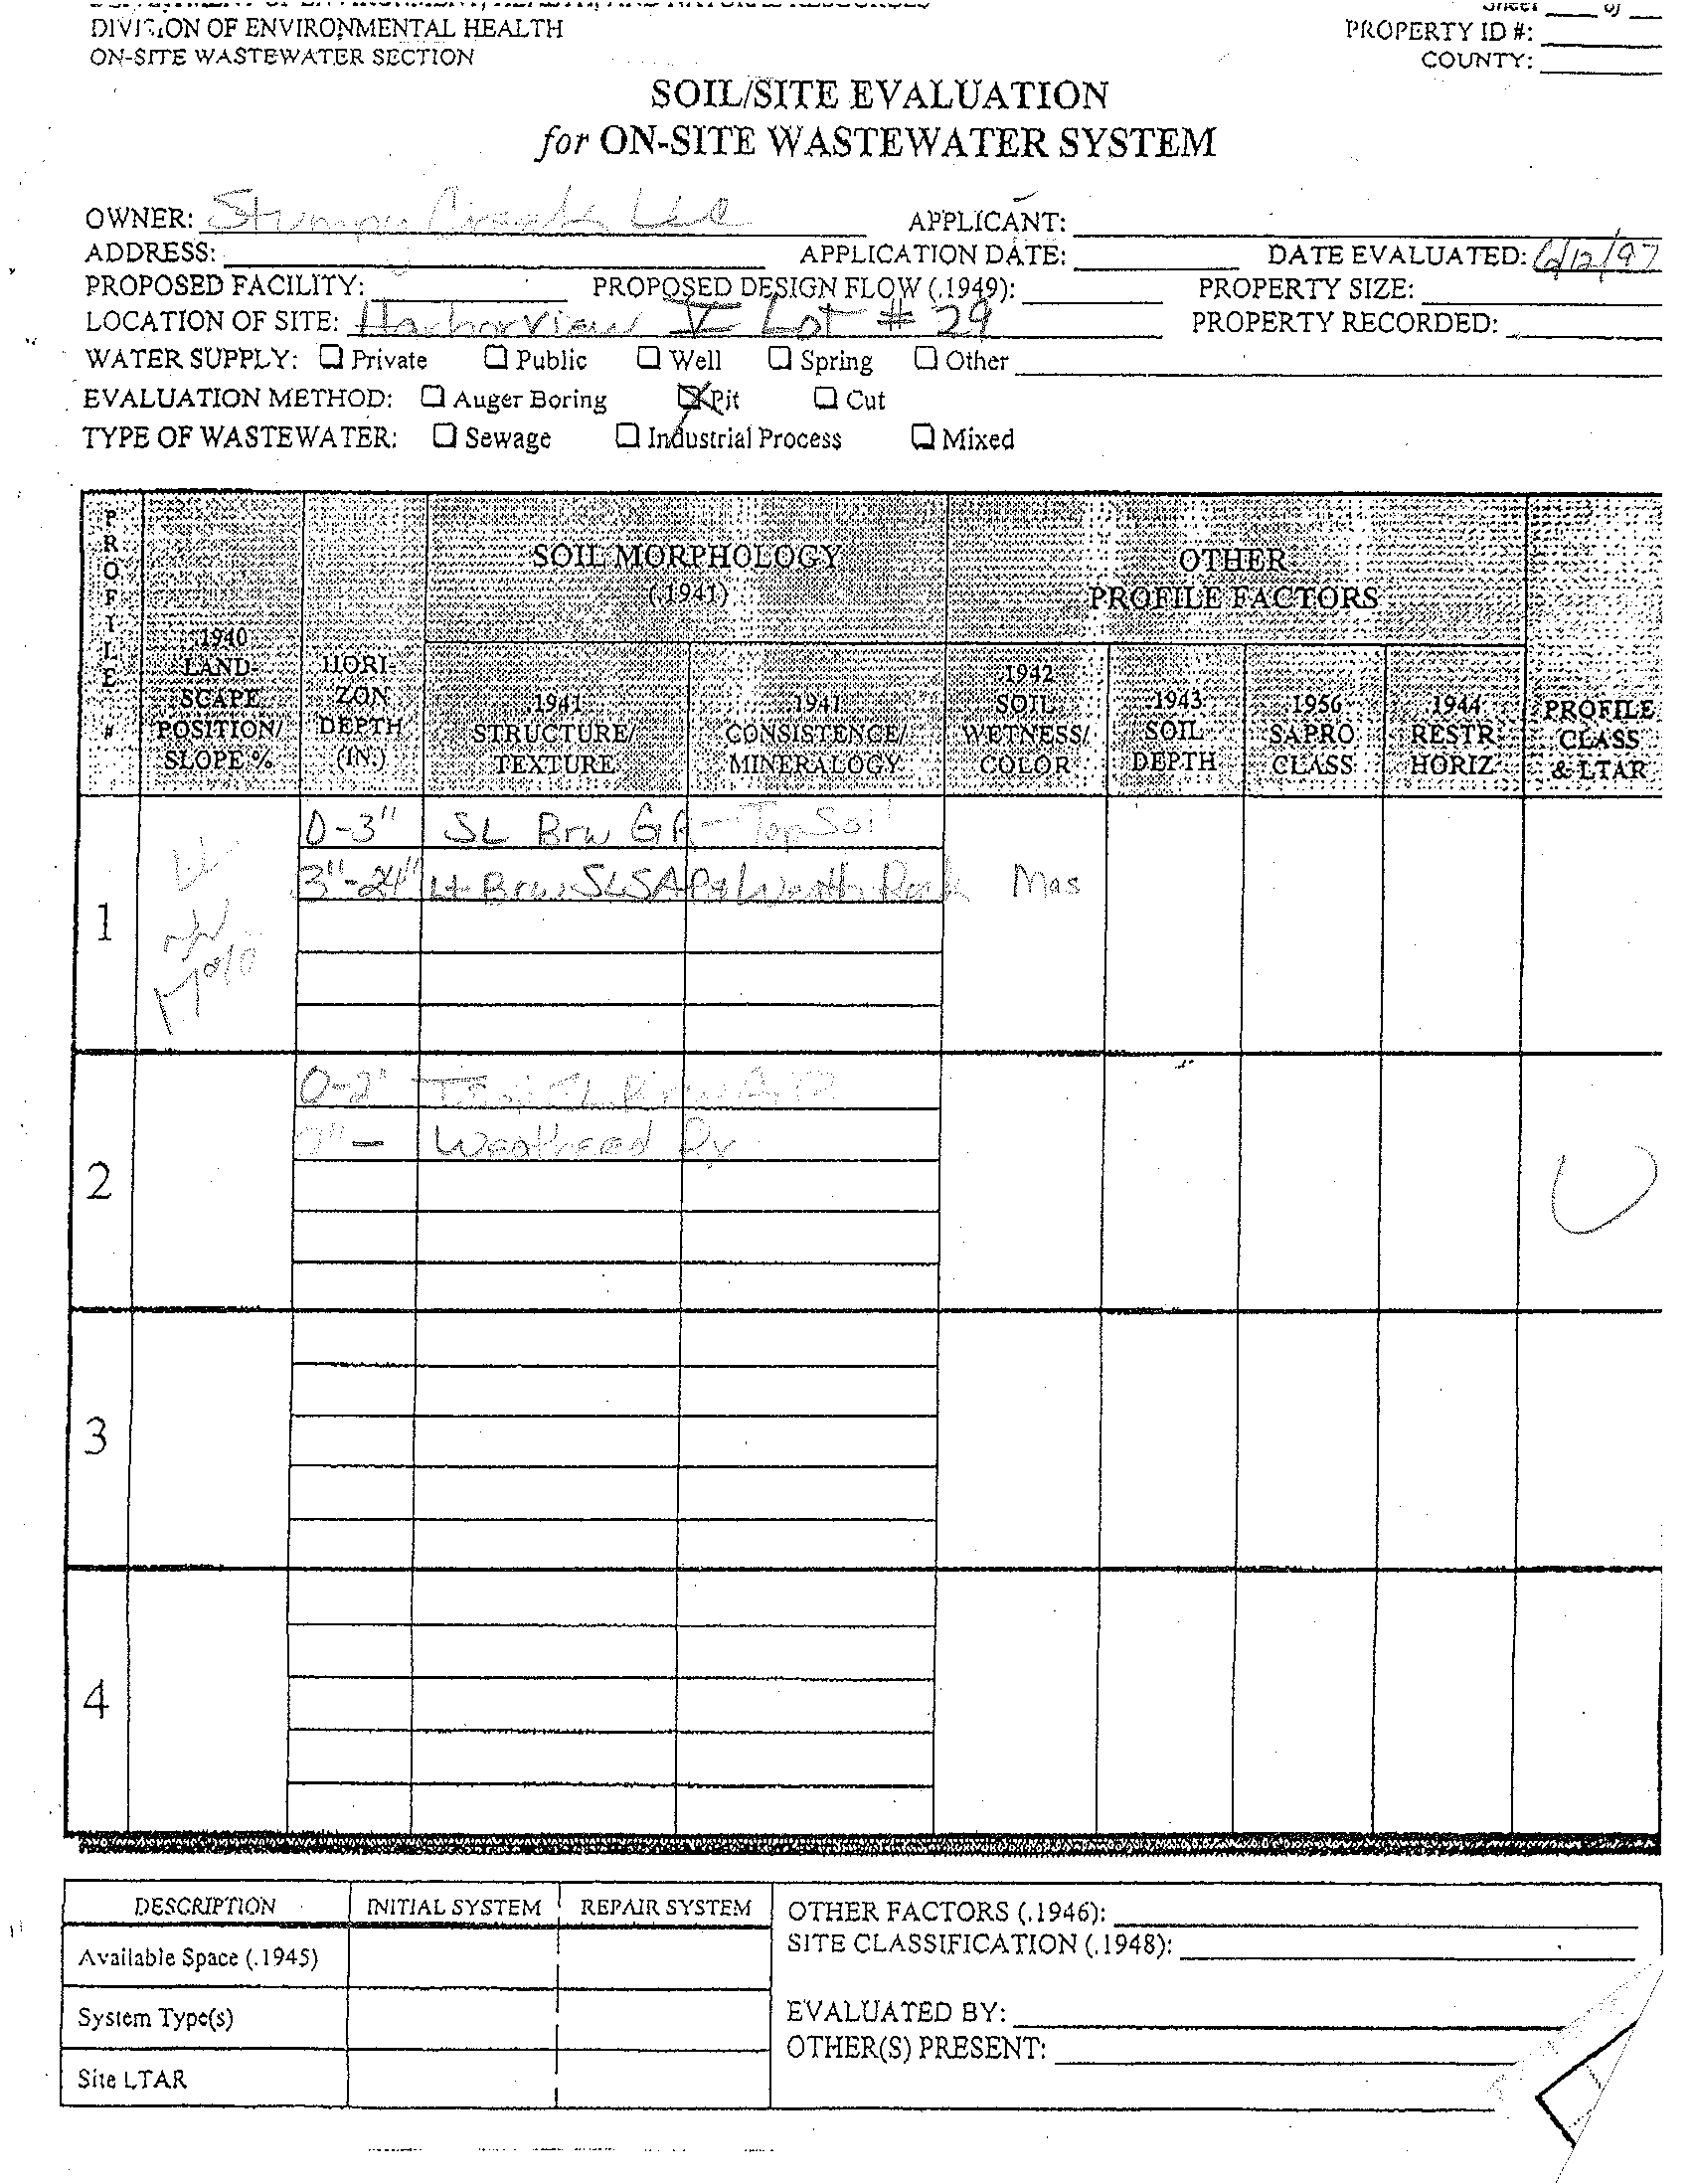 DIVISION OF ENVIRONMENTAL HEALTH
ON-SITE WASTEWATER SECTION
Sheet ____ of ____
PROPERTY ID #:
COUNTY:
SOIL/SITE EVALUATION
for ON-SITE WASTEWATER SYSTEM
OWNER: Stumpy Creek LLC APPLICANT:
ADDRESS: APPLICATION DATE: DATE EVALUATED: 6/12/97
PROPOSED FACILITY: PROPOSED DESIGN FLOW (.1949): PROPERTY SIZE:
LOCATION OF SITE: Harborview V Lot # 29 PROPERTY RECORDED:
WATER SUPPLY: Private Public Well Spring Other
EVALUATION METHOD: Auger Boring Pit Cut
TYPE OF WASTEWATER: Sewage Industrial Process Mixed
PROFILE #
.1940 LAND-SCAPE POSITION/ SLOPE %
HORI-ZON DEPTH (IN.)
SOIL MORPHOLOGY (.1941)
.1941 STRUCTURE/ TEXTURE
.1941 CONSISTENCE/ MINERALOGY
OTHER PROFILE FACTORS
.1942 SOIL WETNESS/ COLOR
.1943 SOIL DEPTH
.1956 SAPRO CLASS
.1944 RESTR HORIZ
PROFILE CLASS & LTAR
1
0-3" SL Brw GR - TopSoil
3"-24" Lt Brw SL SAP Weath Rock Mas
2
0-2"
Weathered
U
3
4
DESCRIPTION INITIAL SYSTEM REPAIR SYSTEM
Available Space (.1945)
System Type(s)
Site LTAR
OTHER FACTORS (.1946):
SITE CLASSIFICATION (.1948):
EVALUATED BY:
OTHER(S) PRESENT: